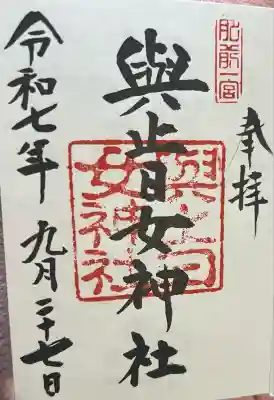 肥前一宮
奉拝
與止日女神社
與止日女神社
令和七年九月二十七日